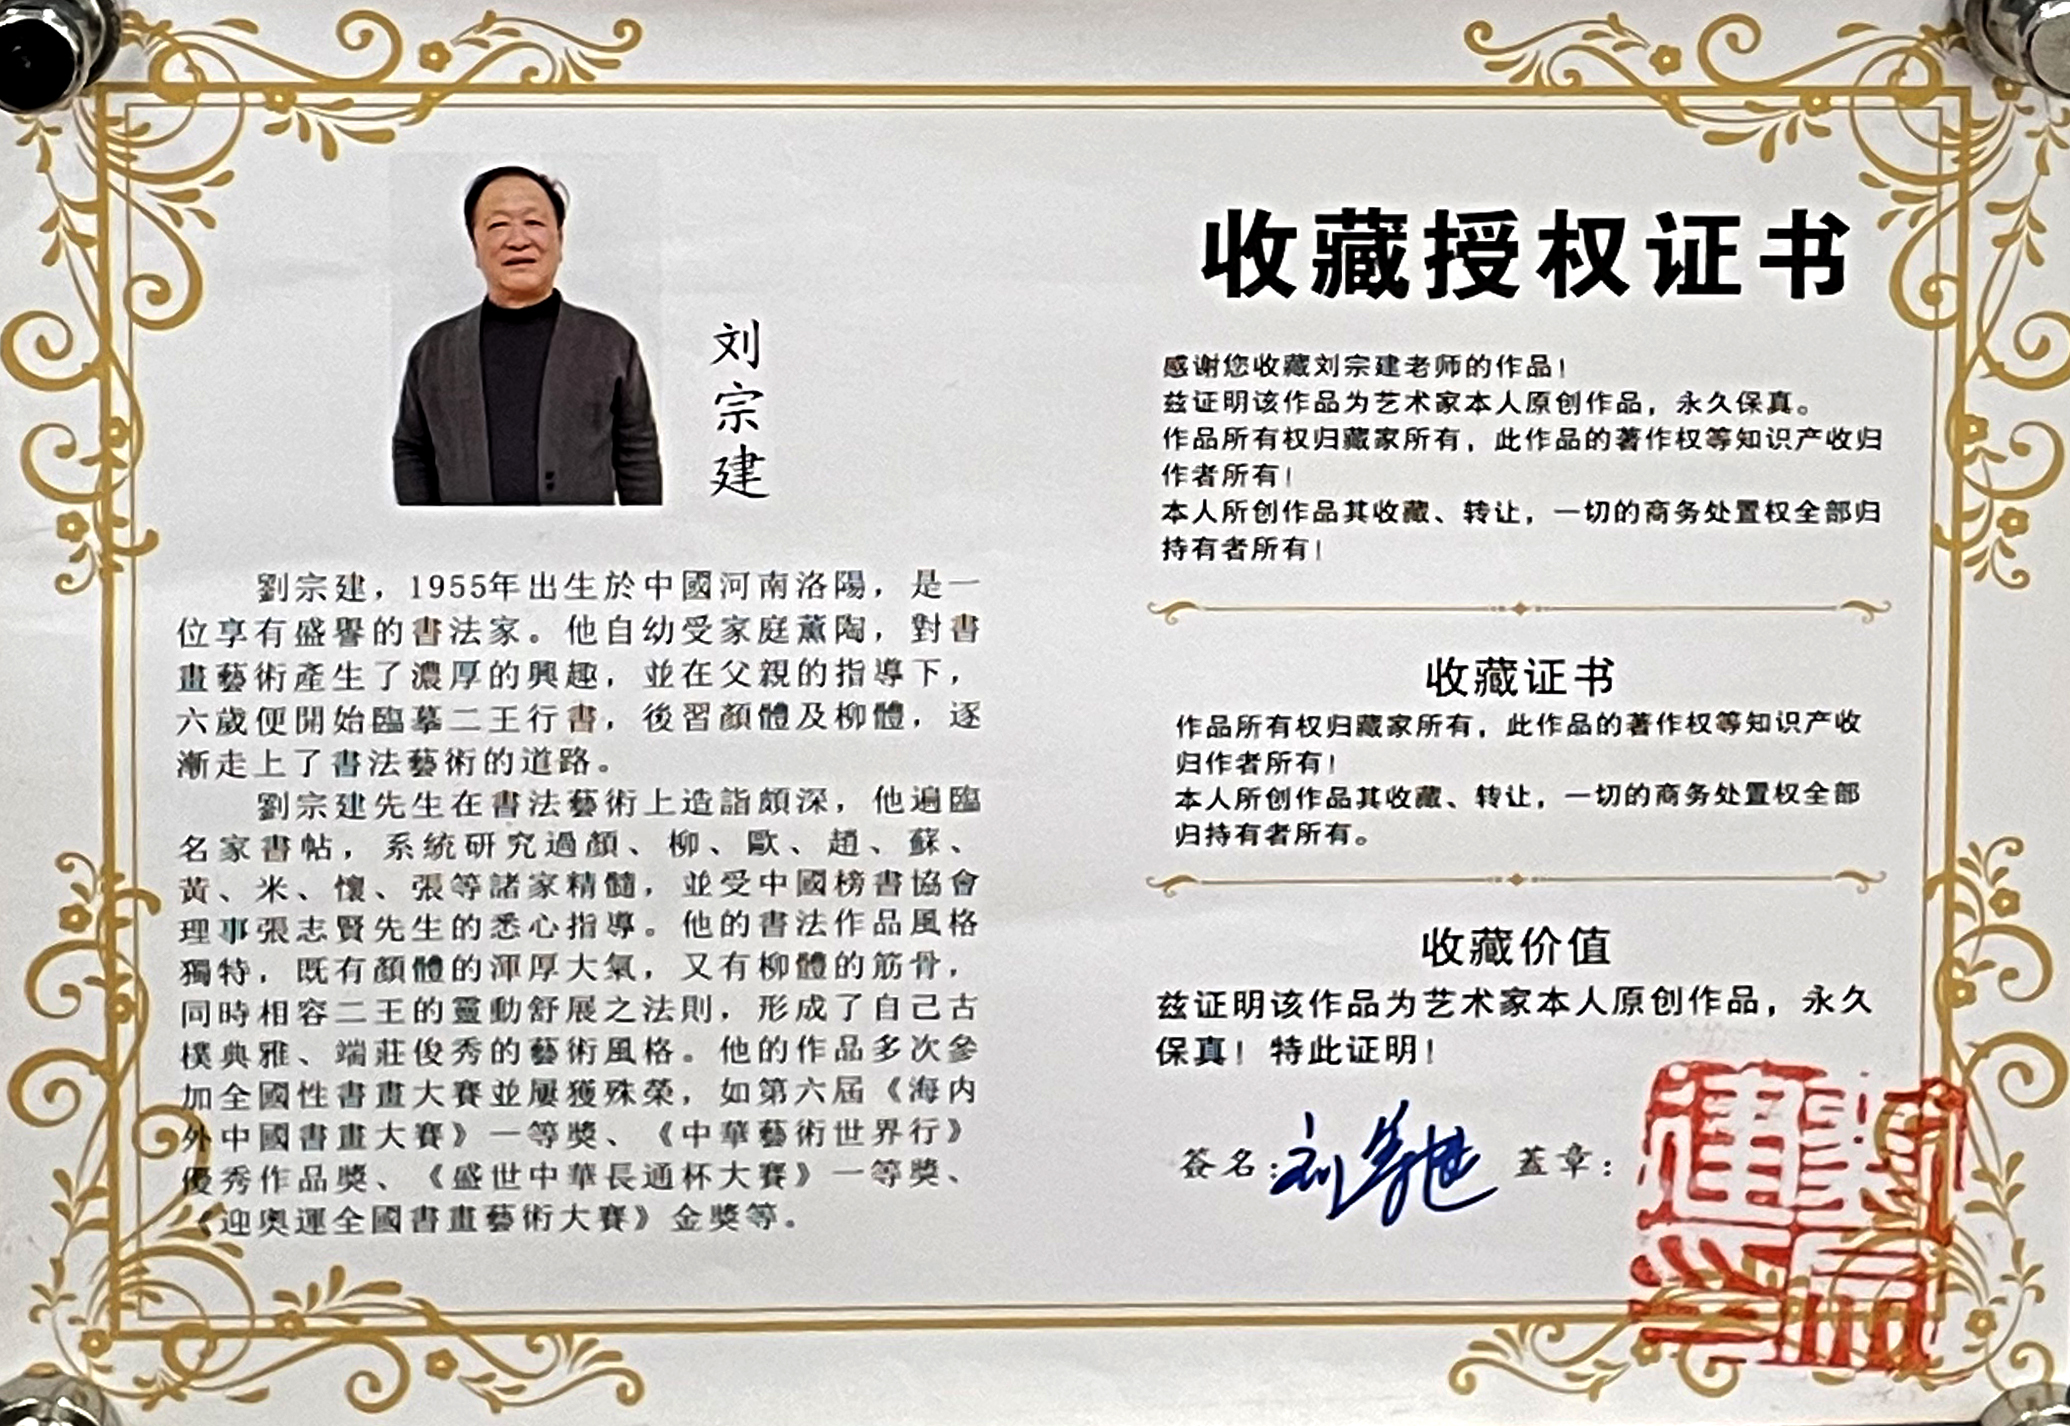 刘
宗
建
劉宗建，1955年出生於中國河南洛陽，是一
位享有盛譽的書法家。他自幼受家庭薰陶，對書
畫藝術產生了濃厚的興趣，並在父親的指導下，
六歲便開始臨摹二王行書，後習顏體及柳體，逐
漸走上了書法藝術的道路。
劉宗建先生在書法藝術上造詣頗深，他遍臨
名家書帖，系統研究過顏、柳、歐、趙、蘇、
黃、米、懷、張等諸家精髓，並受中國榜書協會
理事張志賢先生的悉心指導。他的書法作品風格
獨特，既有顏體的渾厚大氣，又有柳體的筋骨，
同時相容二王的靈動舒展之法則，形成了自己古
樸典雅、端莊俊秀的藝術風格。他的作品多次參
加全國性書畫大賽並屢獲殊榮，如第六屆《海內
外中國書畫大賽》一等獎、《中華藝術世界行》
優秀作品獎、《盛世中華長通杯大賽》一等獎、
《迎奧運全國書畫藝術大賽》金獎等。
收藏授权证书
感谢您收藏刘宗建老师的作品！
兹证明该作品为艺术家本人原创作品，永久保真。
作品所有权归藏家所有，此作品的著作权等知识产收归
作者所有！
本人所创作品其收藏、转让，一切的商务处置权全部归
持有者所有！
收藏证书
作品所有权归藏家所有，此作品的著作权等知识产收
归作者所有！
本人所创作品其收藏、转让，一切的商务处置权全部
归持有者所有。
收藏价值
兹证明该作品为艺术家本人原创作品，永久
保真！特此证明！
签名：刘宗建 盖章：